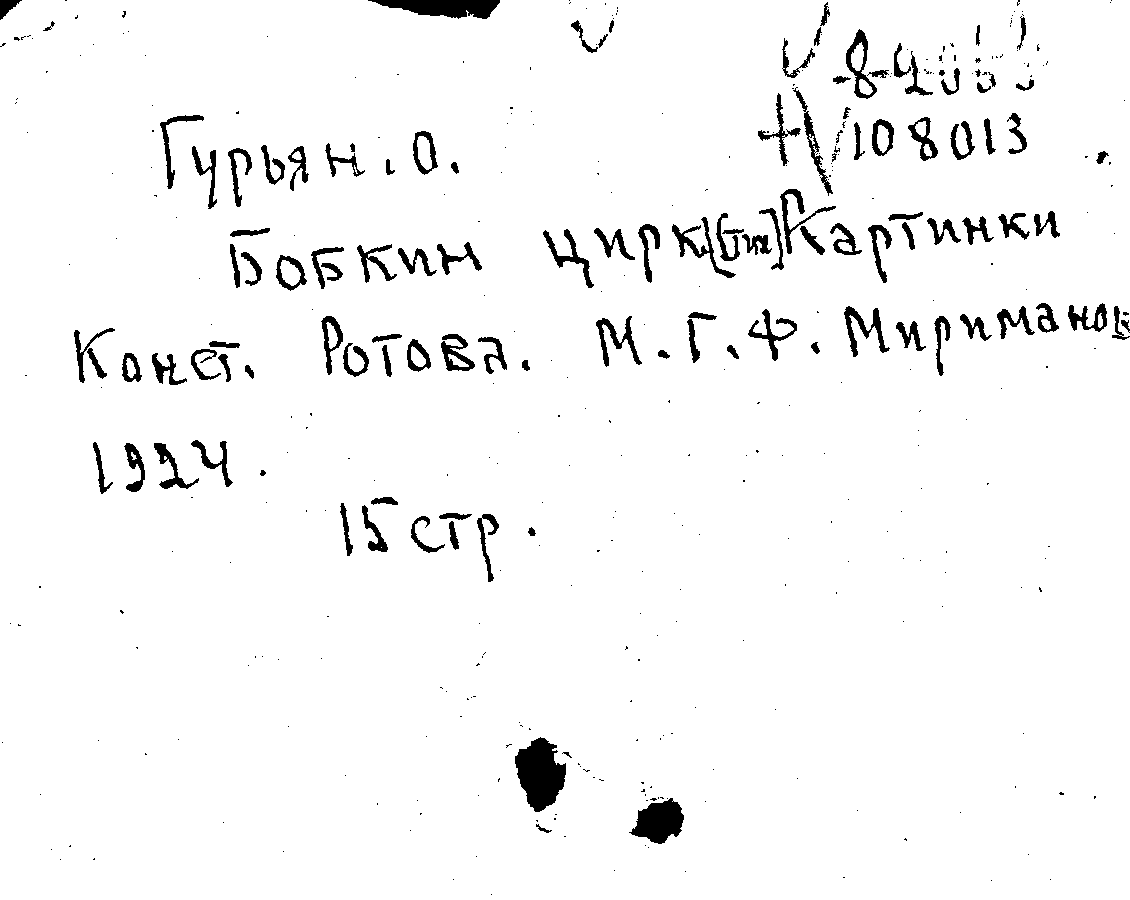 108013
Гурьян. О.
Бобкин цирк [Стих] Картинки
Конст. Ротова. М. Г. Ф. Мириманов
1924.
15 стр.